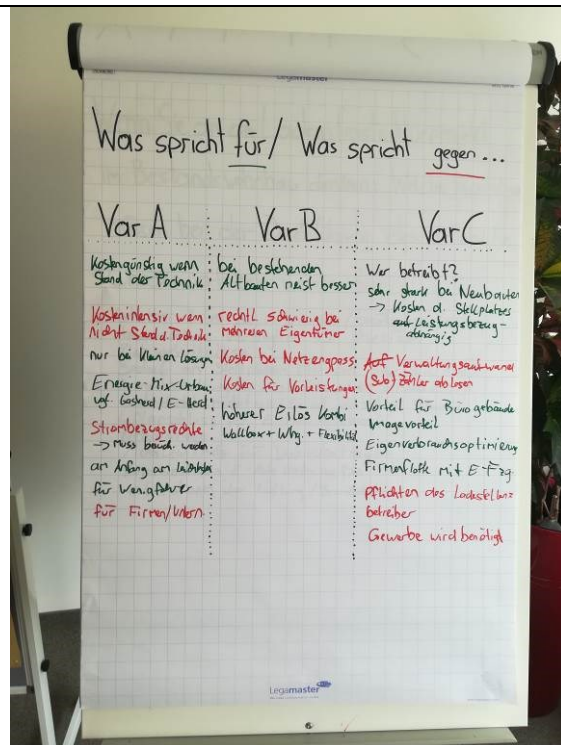 Legamaster
Was spricht für / Was spricht gegen ...
Var A
Kostengünstig wenn
Stand der Technik
Kostenintensiv wenn
nicht Stand d. Technik
nur bei kleinen Lösungen
Energie-Mix-Urbau
vgl. Gasherd / E-Herd
Strombezugsrechte
→ Muss werden
am Anfang am leichtesten
für Wenigfahrer
für Firmen/Untern.
Var B
bei bestehenden
Altbauten meist besser
rechtl. schwierig bei
mehreren Eigentümer
Kosten bei Netzengpass.
Kosten für Vorleistungen
höherer Erlös Kombi
Wallbox + Whg. + Flexibilität
Var C
Wer betreibt?
sehr stark bei Neubauten
→ Kosten d. Stellplatzes
auf Leistungsbezug-
abhängig
Auf Verwaltungsaufwand
(Sub) Zähler ablesen
Vorteil für Bürogebäude
Imagevorteil
Eigenverbrauchsoptimierung
Firmenflotte mit E-Fzg
Pflichten des Ladestellen
betreiber
Gewerbe wird benötigt
Legamaster